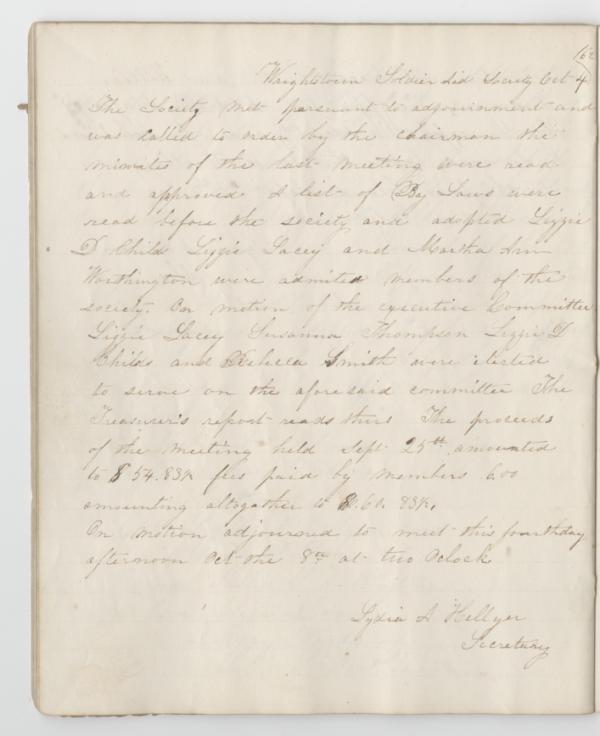 162
Wrightstown Soldier Aid Society Oct 4
The Society met pursuant to adjournment and
was called to order by the chairman the
minutes of the last meeting were read
and approved A list of By Laws were
read before the society and adopted Lizzie
D Childs Lizzie Lacey and Martha Ann
Worthington were admited members of the
society. On motion of the executive Committee
Lizzie Lacey Susanna Thompson Lizzie D
Childs and Rebecca Smith were elected
to serve on the aforesaid committee The
Treasurer's report reads thus The proceeds
of the meeting held Sept 25th amounted
to $54.83½ fees paid by members 6.00
amounting altogather to $.60.83½.
On motion adjourned to meet this fourthday
afternoon Oct the 8th at two Oclock
Lydia A Hellyer
Secretary